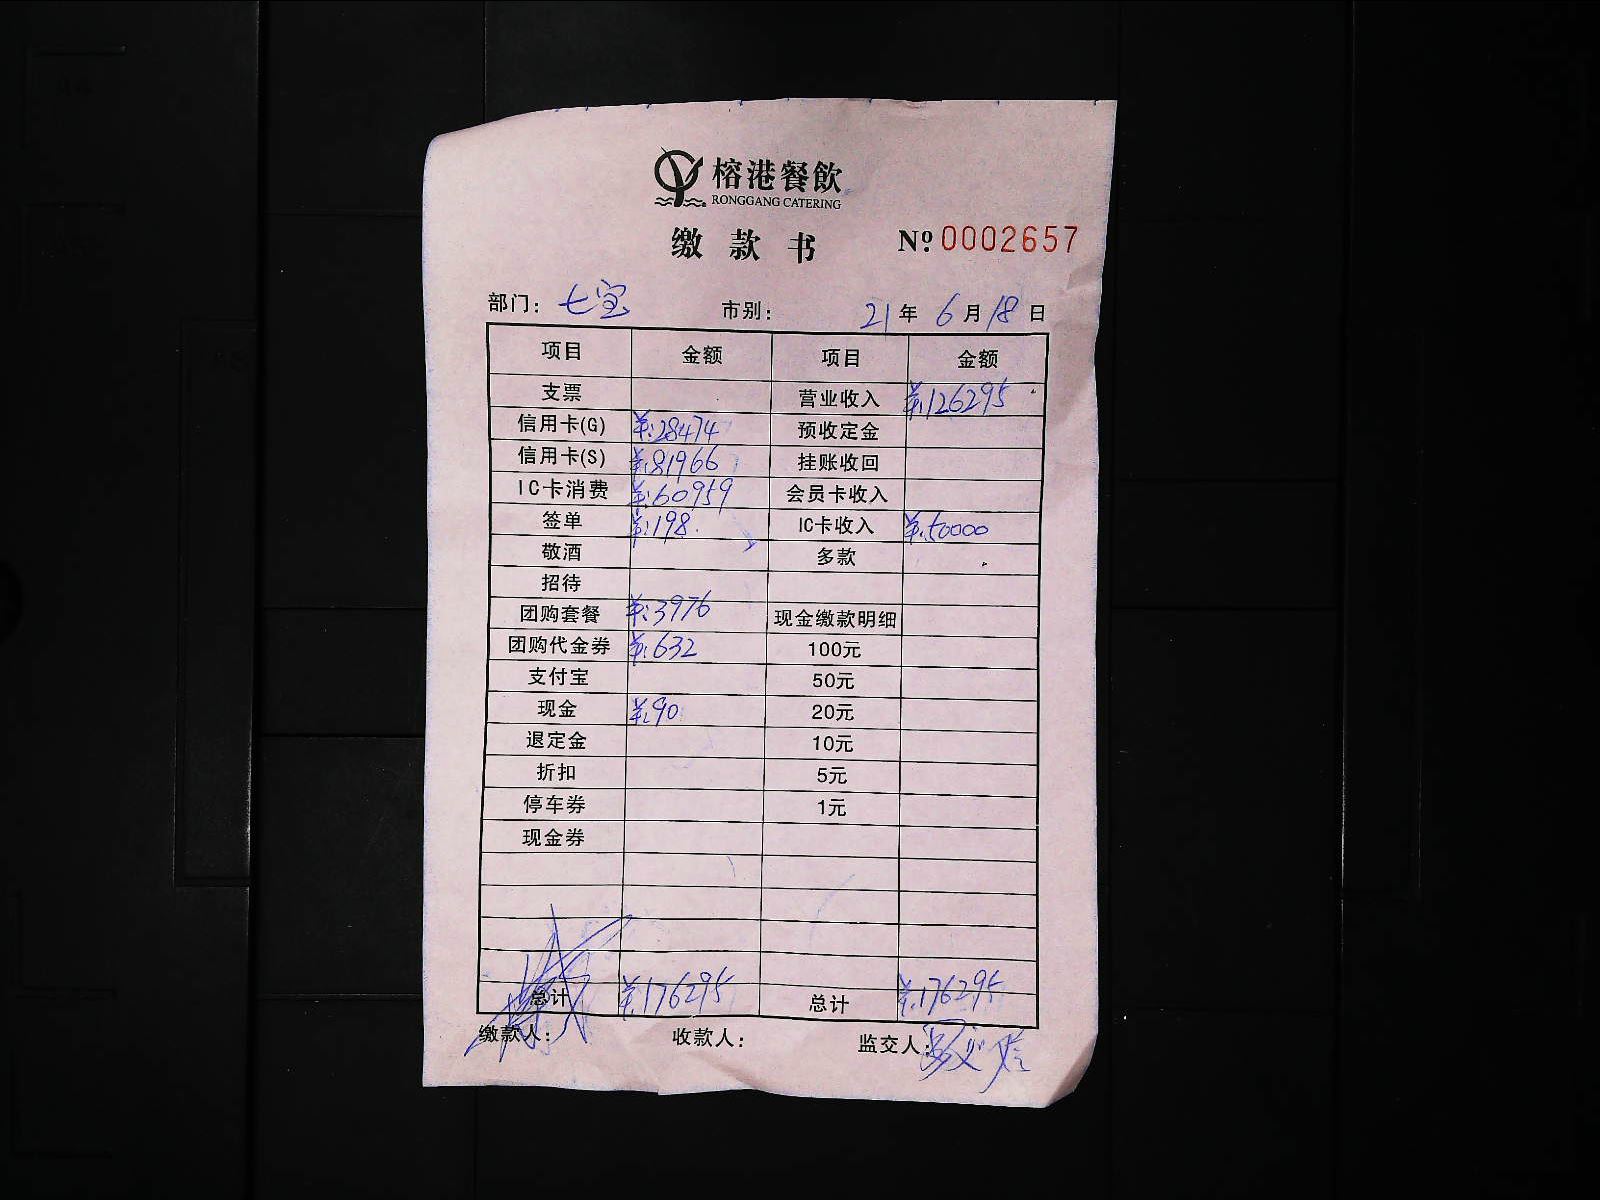 榕港餐飲
RONGGANG CATERING
缴款书 № 0002657
部门：七宝 市别： 21年6月18日
项目 金额 项目 金额
支票 营业收入 ¥:126295
信用卡(G) ¥:28474 预收定金
信用卡(S) ¥:81966 挂账收回
IC卡消费 ¥:60959 会员卡收入
签单 ¥:198. IC卡收入 ¥:50000
敬酒 多款
招待
团购套餐 ¥:3976 现金缴款明细
团购代金券 ¥:632 100元
支付宝 50元
现金 ¥:90 20元
退定金 10元
折扣 5元
停车券 1元
现金券
总计 ¥:176295 总计 ¥:176295
缴款人： 收款人： 监交人：